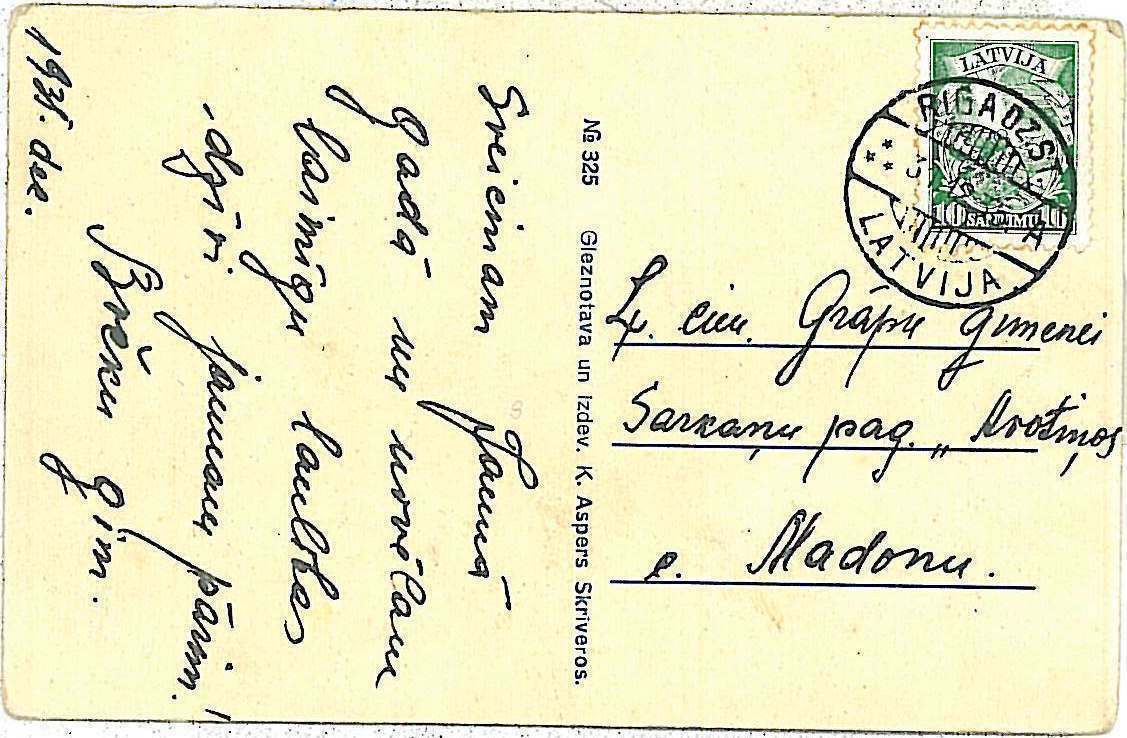 Sveicinam Jaunā
Gadā un novēlam
laimīgu laulības
dzīvi jaunam pārim!
Brēķu ģim.
1935. dec.
№ 325 Gleznotava un Izdev. K. Aspers Skrīveros.
LATVIJA
10 SANTIMU 10
RIGA DZ. ST.
LATVIJA
Ļ. cien. Grāpu ģimenei
Sarkaņu pag. „Avotiņos
c. Madonu.